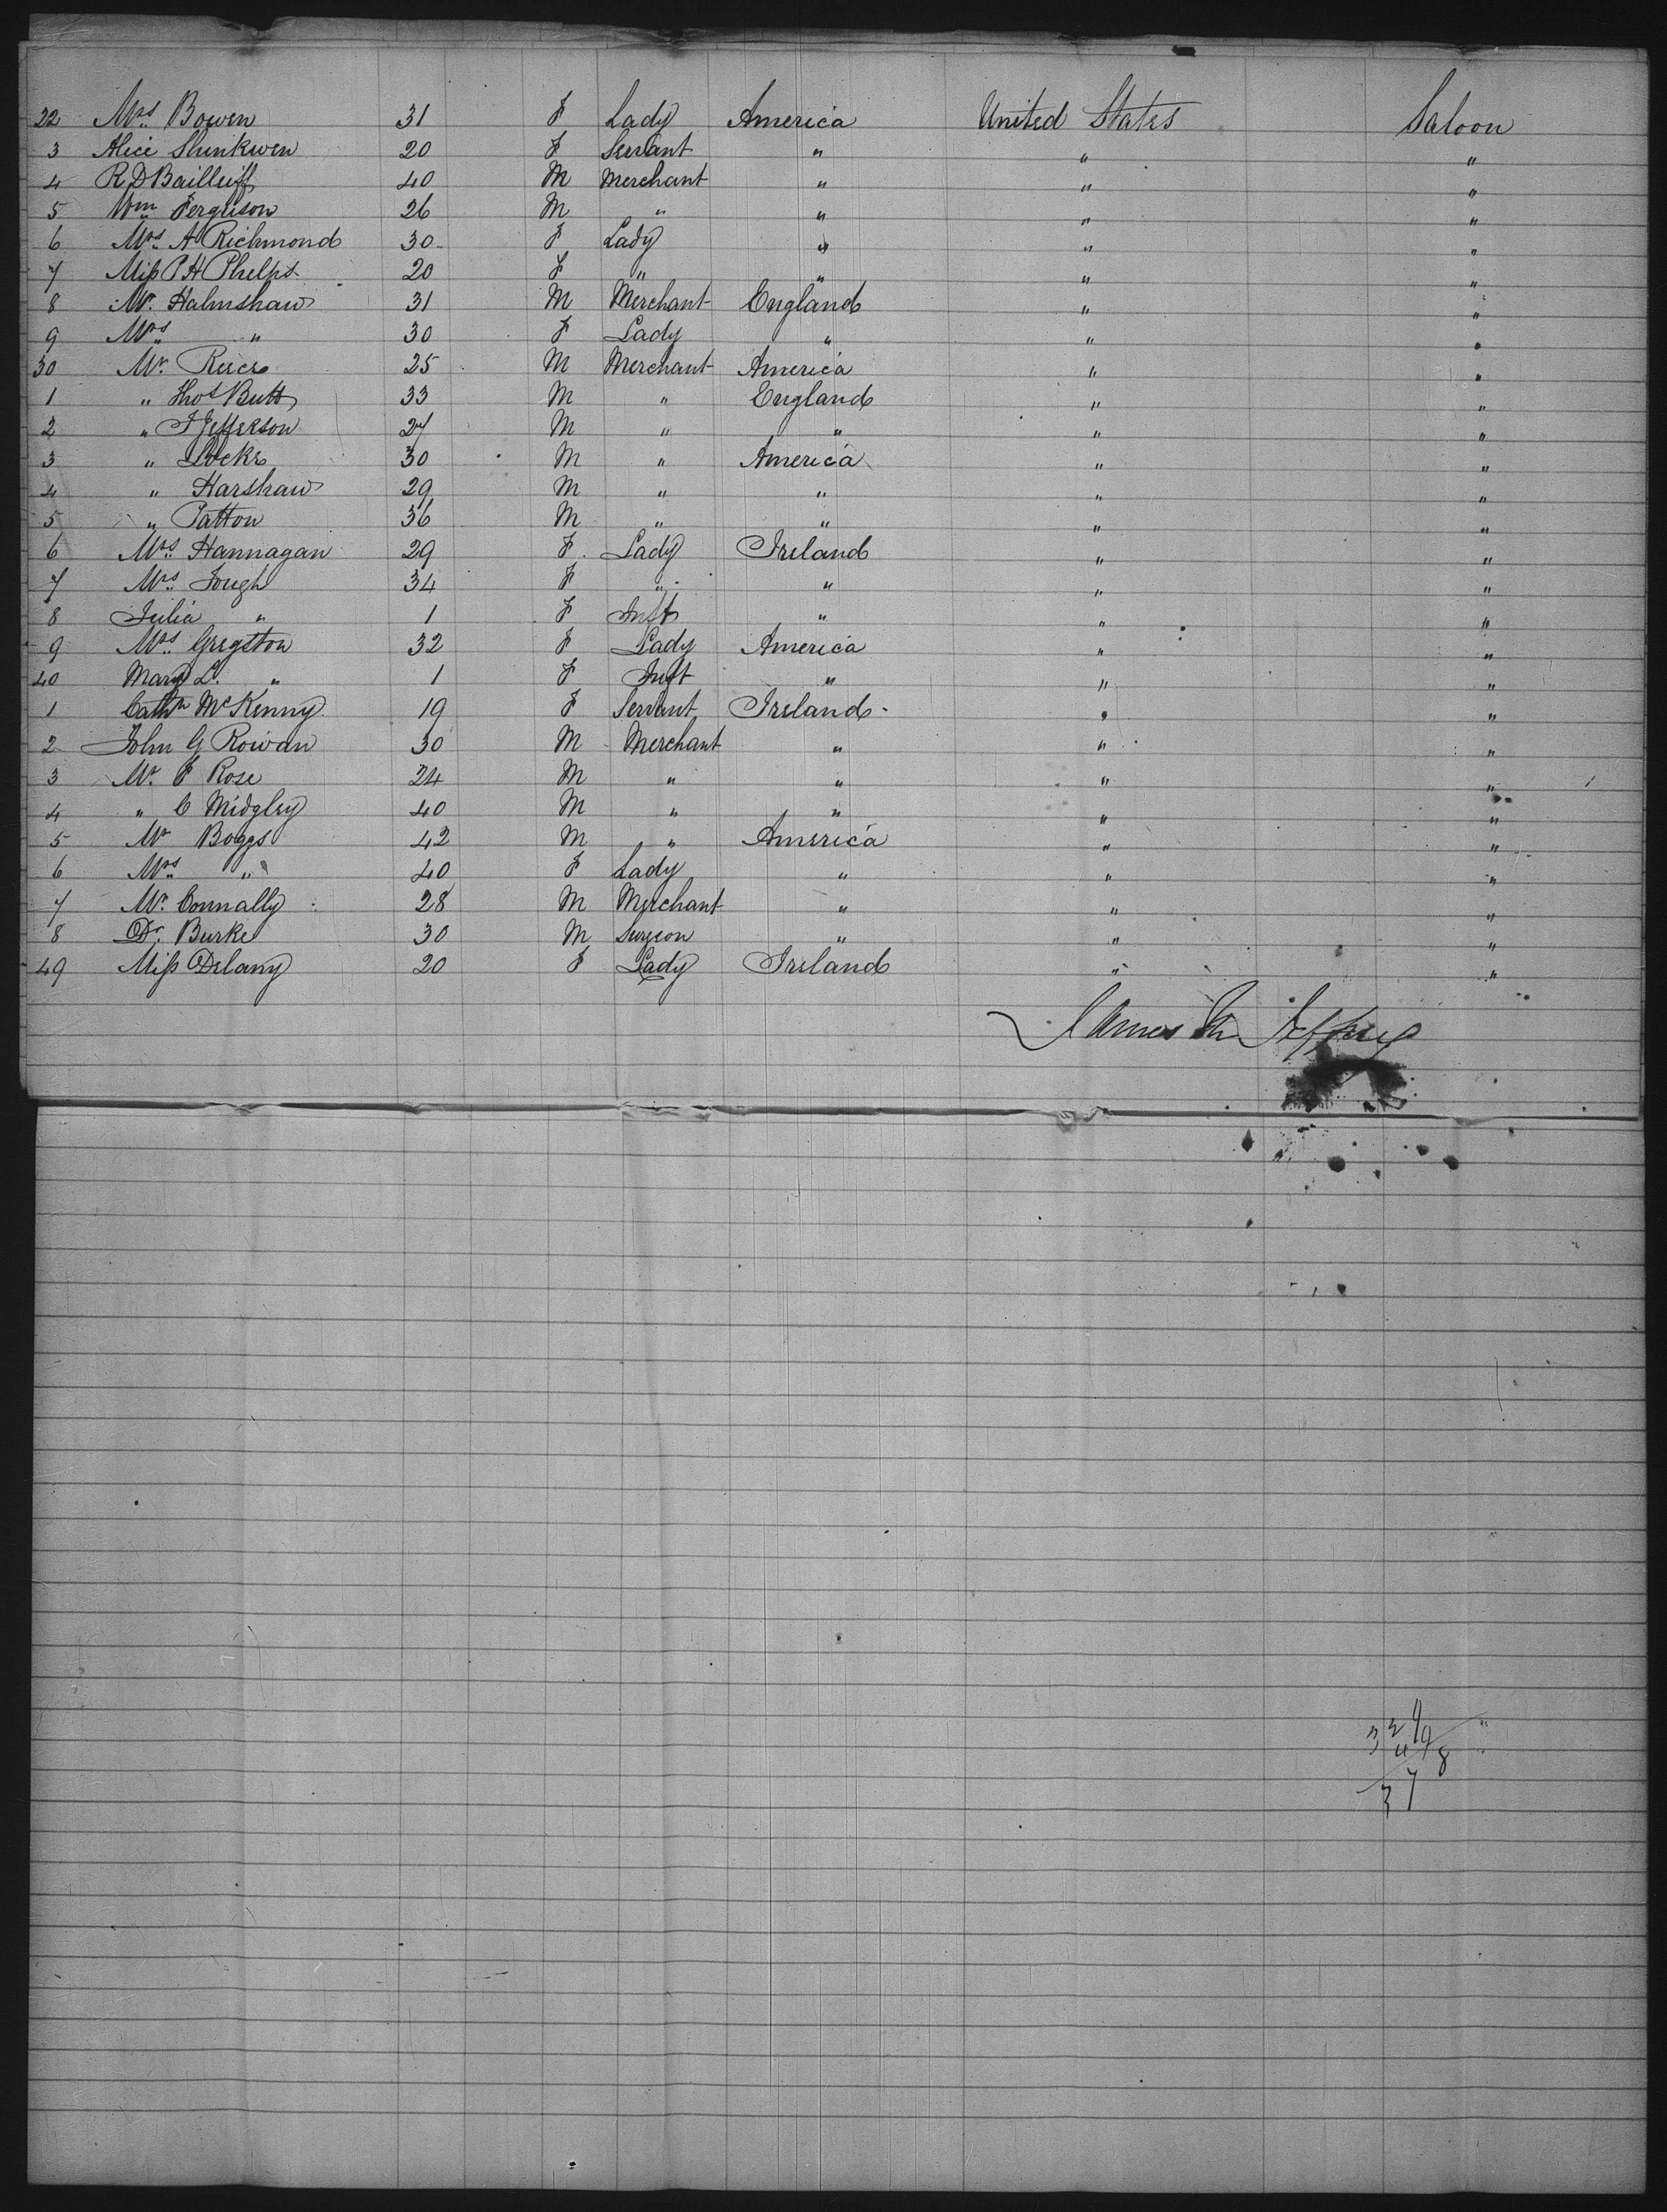 22 Mrs Bowen 31 F Lady America United States Saloon
3 Alice Shinkwen 20 F Servant " " "
4 R D Bailleiff 40 M Merchant " " "
5 Wm Ferguson 26 M " " " "
6 Mrs A Richmond 30 F Lady " " "
7 Miss P H Phelps 20 F " " " "
8 Mr. Halmshaw 31 M Merchant England " "
9 Mrs " 30 F Lady " " "
30 Mr. Reice 25 M Merchant America " "
1 " Thos Butt 33 M " England " "
2 " J Jefferson 27 M " " " "
3 " Locke 30 M " America " "
4 " Harshaw 29 M " " " "
5 " Patton 36 M " " " "
6 Mrs Hannagan 29 F Lady Ireland " "
7 Mrs Fough 34 F " " " "
8 Julia " 1 F Inft " " "
9 Mrs Gregston 32 F Lady America " "
40 Mary L. " 1 F Inft " " "
1 Cathn McKenny 19 F Servant Ireland " "
2 John G Rowan 30 M Merchant " " "
3 Mr. F Rose 24 M " " " "
4 " C Midgley 40 M " " " "
5 Mr Boggs 42 M " America " "
6 Mrs " 40 F Lady " " "
7 Mr. Connally 28 M Merchant " " "
8 Dr. Burke 30 M Surgeon " " "
49 Miss Delany 20 F Lady Ireland " "
James Jeffrey